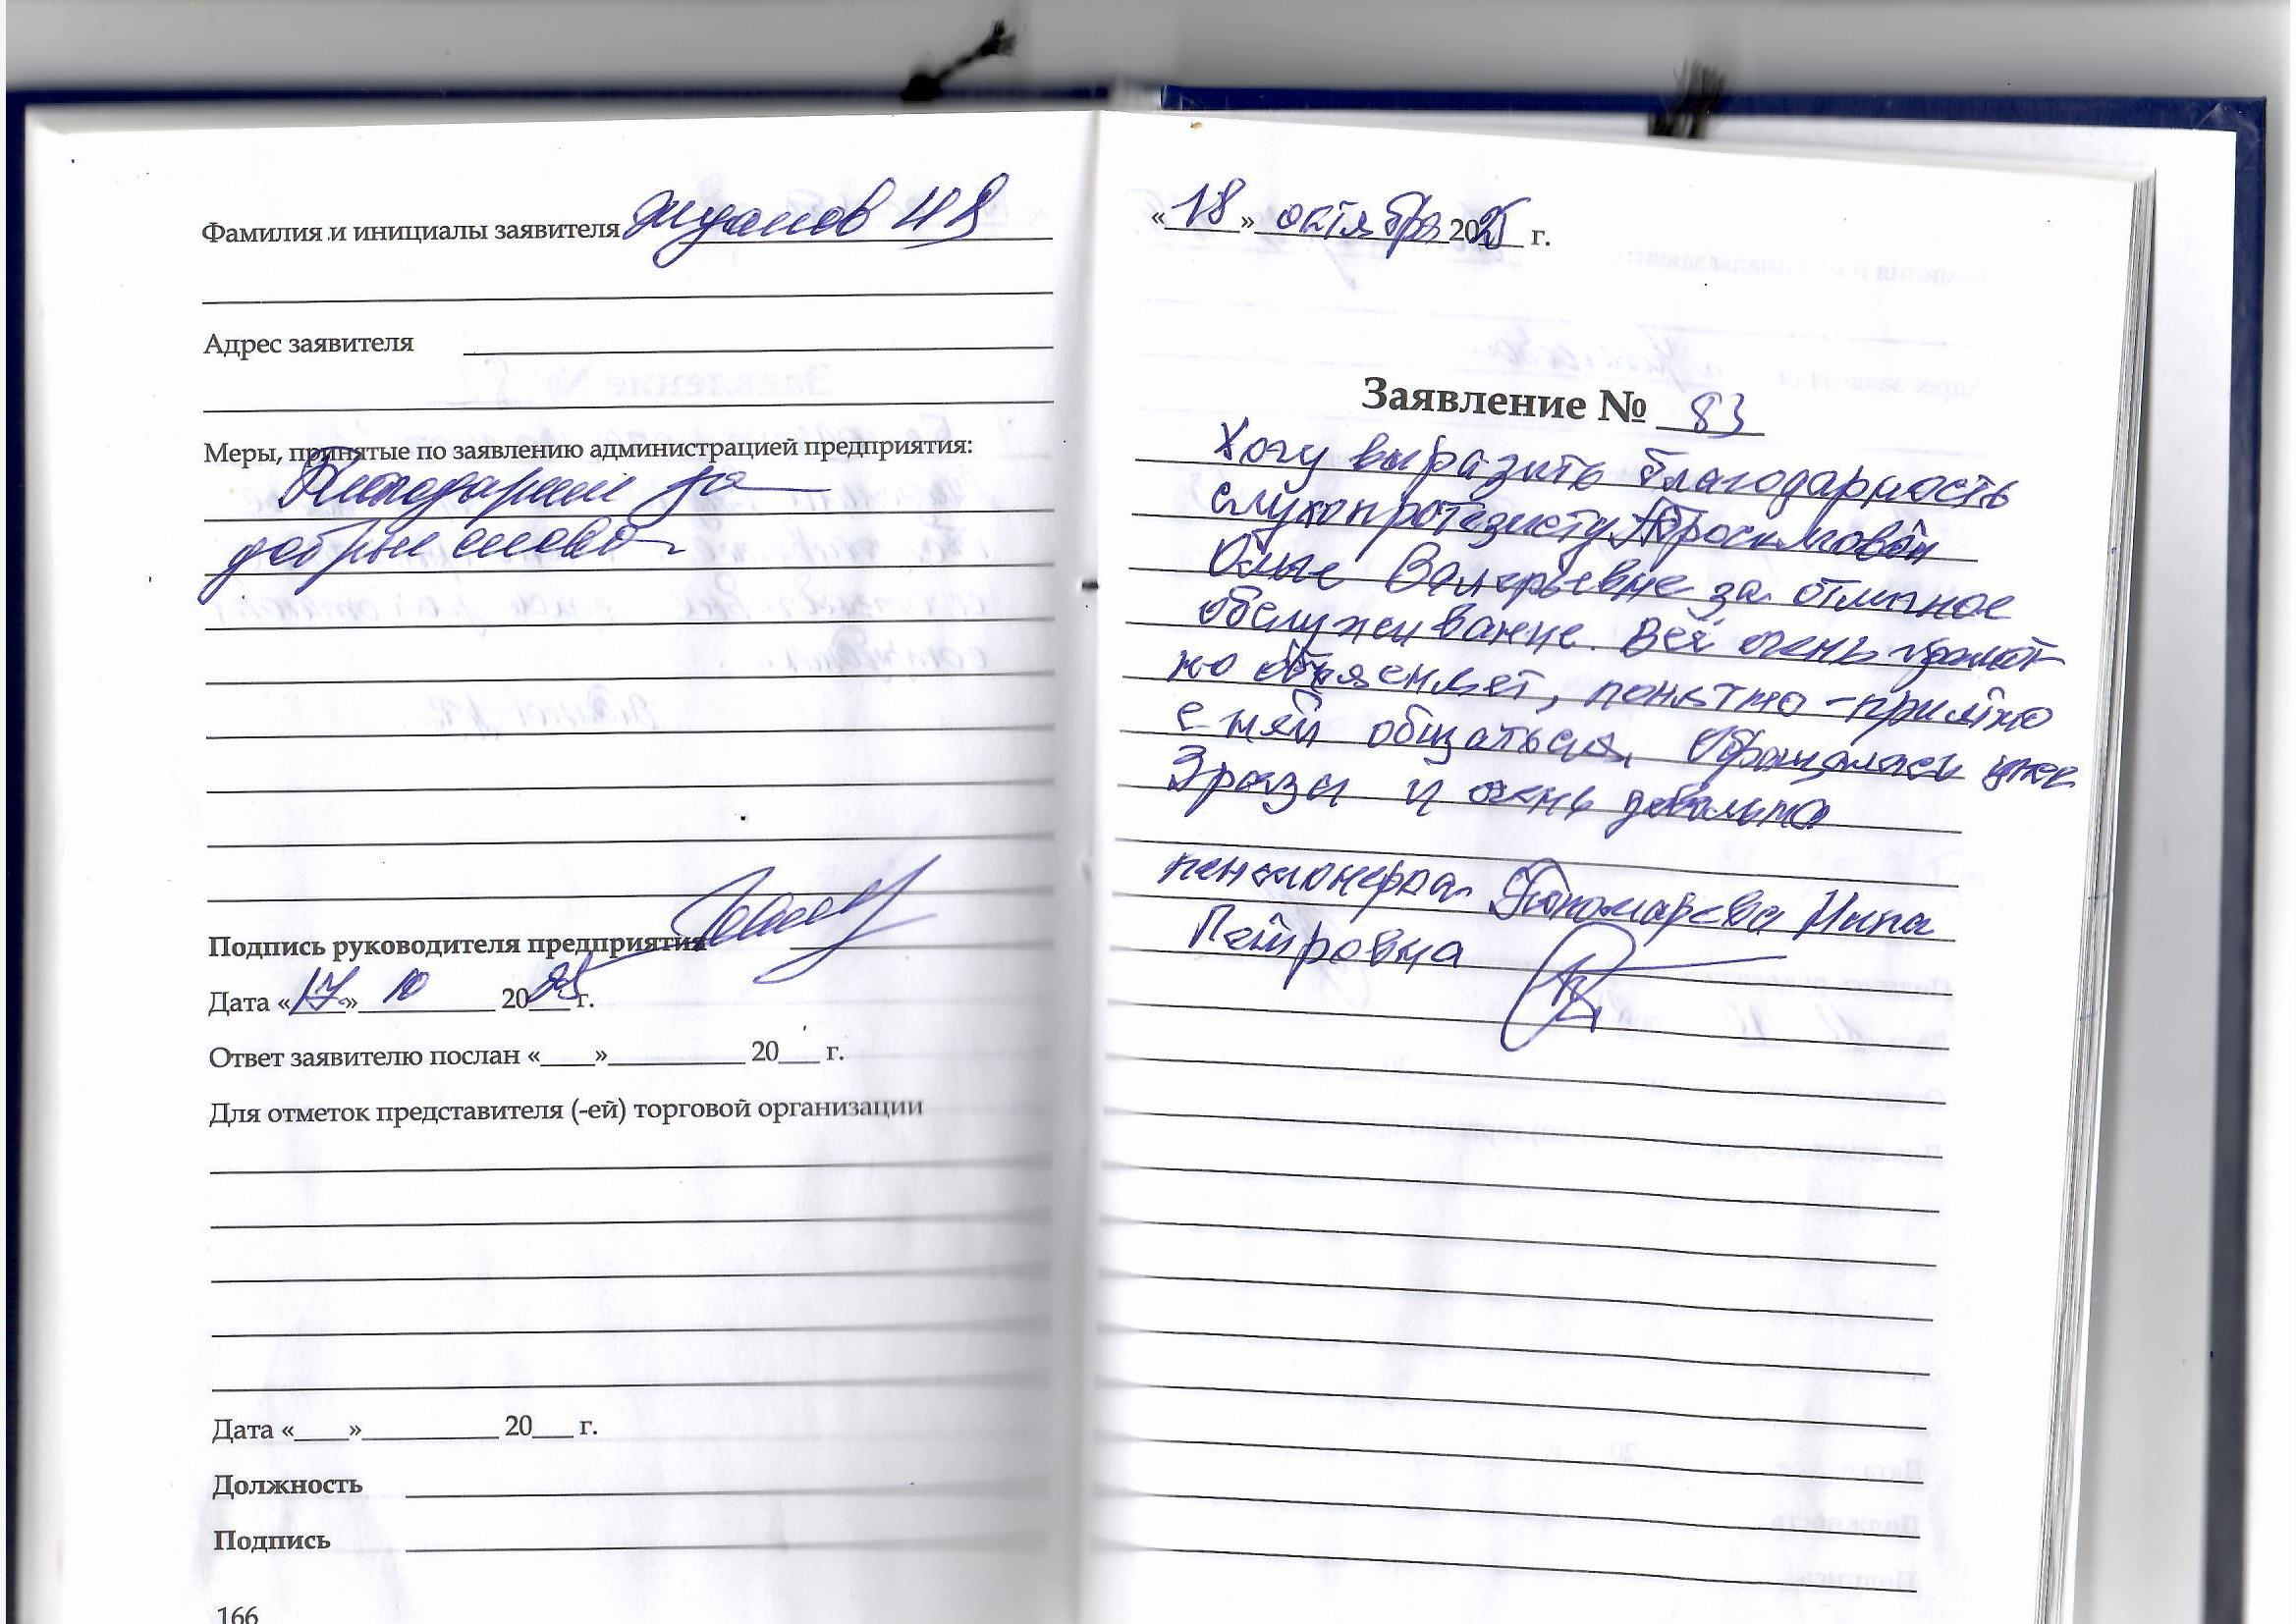 Фамилия и инициалы заявителя Жданов Н В
Адрес заявителя
Меры, принятые по заявлению администрацией предприятия:
Благодарим за
добрые слова
Подпись руководителя предприятия
Дата «17» 10 2025 г.
Ответ заявителю послан «___»__________ 20___ г.
Для отметок представителя (-ей) торговой организации
Дата «___»__________ 20___ г.
Должность
Подпись
166
«18» октября 2025 г.
Заявление № 83
Хочу выразить благодарность
слухопротезисту
Ольге Валерьевне за отличное
обслуживание. Всё очень грамот
но объясняет, понятно - приятно
с ней общаться. Обращалась уже
3 разы и очень довольна
пенсионерка Пономарева Нина
Петровна